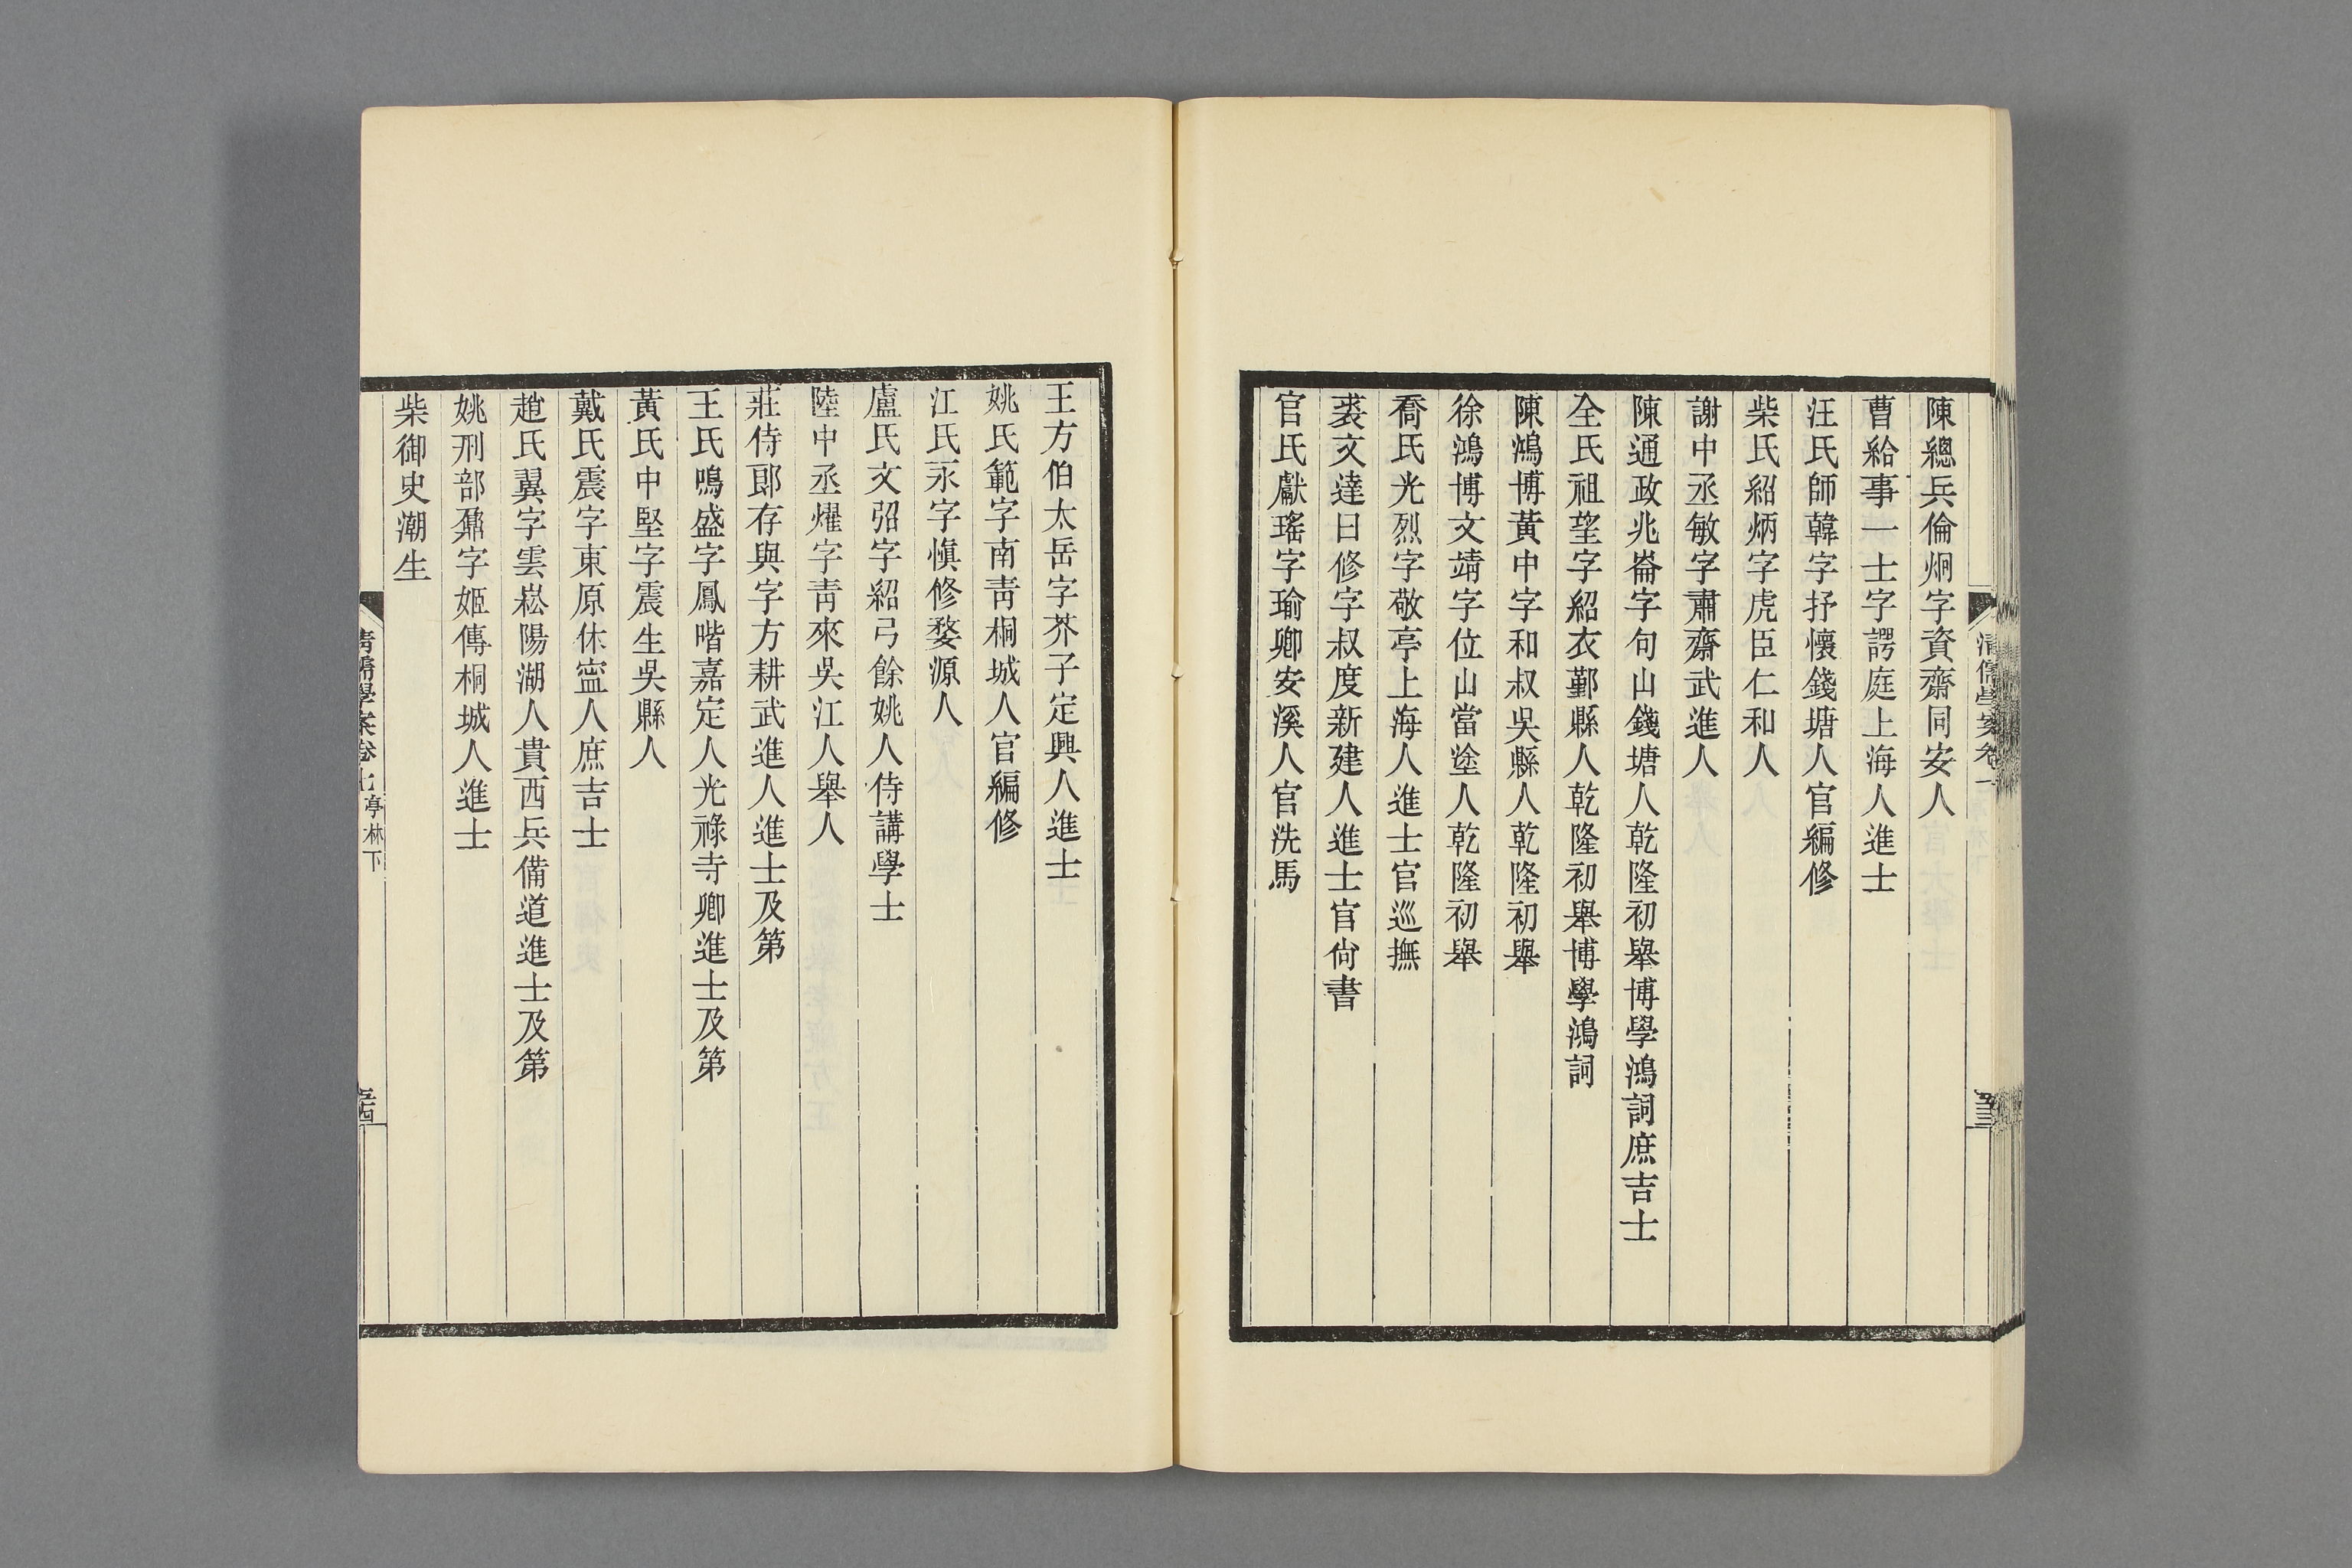 陳總兵倫炯字資齋同安人
曹給事一士字諤庭上海人進士
汪氏師韓字抒懷錢塘人官編修
柴氏紹炳字虎臣仁和人
謝中丞敏字肅齋武進人
陳通政兆崙字句山錢塘人乾隆初舉博學鴻詞庶吉士
全氏祖望字紹衣鄞縣人乾隆初舉博學鴻詞
陳鴻博黃中字和叔吳縣人乾隆初舉
徐鴻博文靖字位山當塗人乾隆初舉
喬氏光烈字敬亭上海人進士官巡撫
裘文達曰修字叔度新建人進士官尙書
官氏獻瑤字瑜卿安溪人官洗馬
王方伯太岳字芥子定興人進士
姚氏範字南靑桐城人官編修
江氏永字愼修婺源人
盧氏文弨字紹弓餘姚人侍講學士
陸中丞燿字靑來吳江人舉人
莊侍郎存與字方耕武進人進士及第
王氏鳴盛字鳳喈嘉定人光祿寺卿進士及第
黃氏中堅字震生吳縣人
戴氏震字東原休寧人庶吉士
趙氏翼字雲崧陽湖人貴西兵備道進士及第
姚刑部鼐字姬傳桐城人進士
柴御史潮生
淸儒學案卷七 亭林下